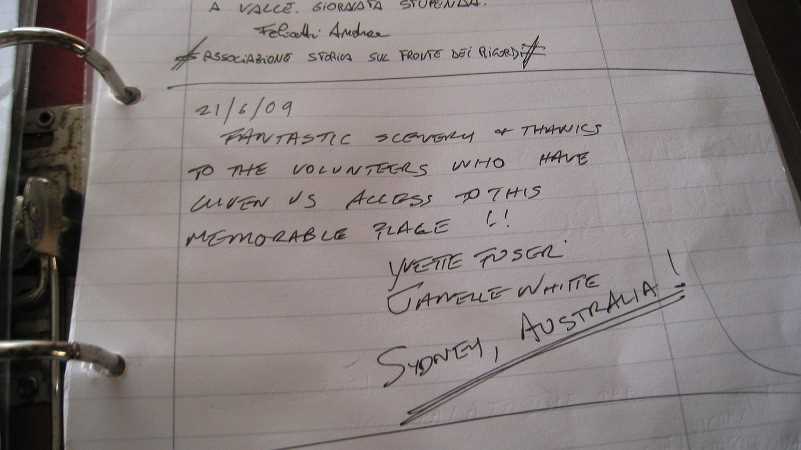 A VALLE. GIORNATA STUPENDA.
Andrea
ASSOCIAZIONE STORICA SUL FRONTE DEI RICORDI
21/6/09
FANTASTIC SCENERY & THANKS
TO THE VOLUNTEERS WHO HAVE
GIVEN US ACCESS TO THIS
MEMORABLE PLACE !!
YVETTE FUSERI
JANELLE WHITE
SYDNEY, AUSTRALIA!